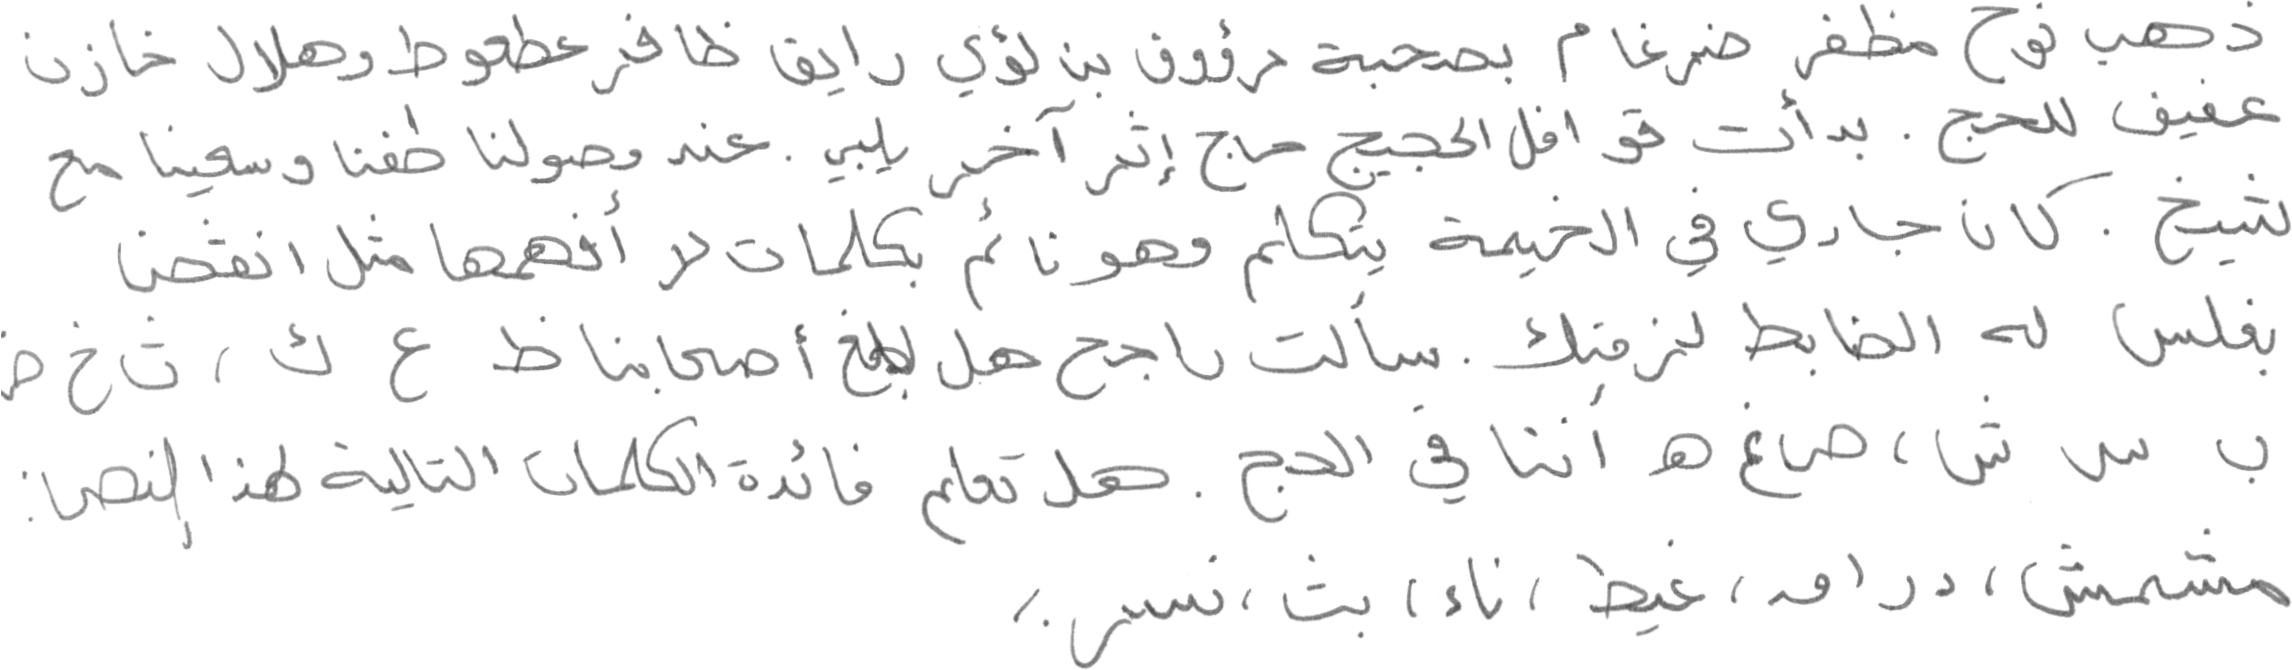 ذهب نوح مظفر ضرغام بصحبة رؤوف بن لؤي رايق ظافر عطعوط وهلال خازن
عفيف للحج . بدأت قوافل الحجيج حاج إثر آخر يلبي . عند وصولنا طفنا وسعينا مع
شيخ . كان جاري في الخيمة يتكلم وهو نائم بكلمات لا أفهمها مثل انقضنا
بفلس له الضابط لنزقتك . سألت راجح هل بلغ أصحابنا ظ ع ك ، ث خ ض
ب س ش ، ص غ ه أننا في الحج . هل تعلم فائدة الكلمات التالية لهذا النص :
مشمش ، در امد ، غيظ ، ناء ، بث ، نسر .،